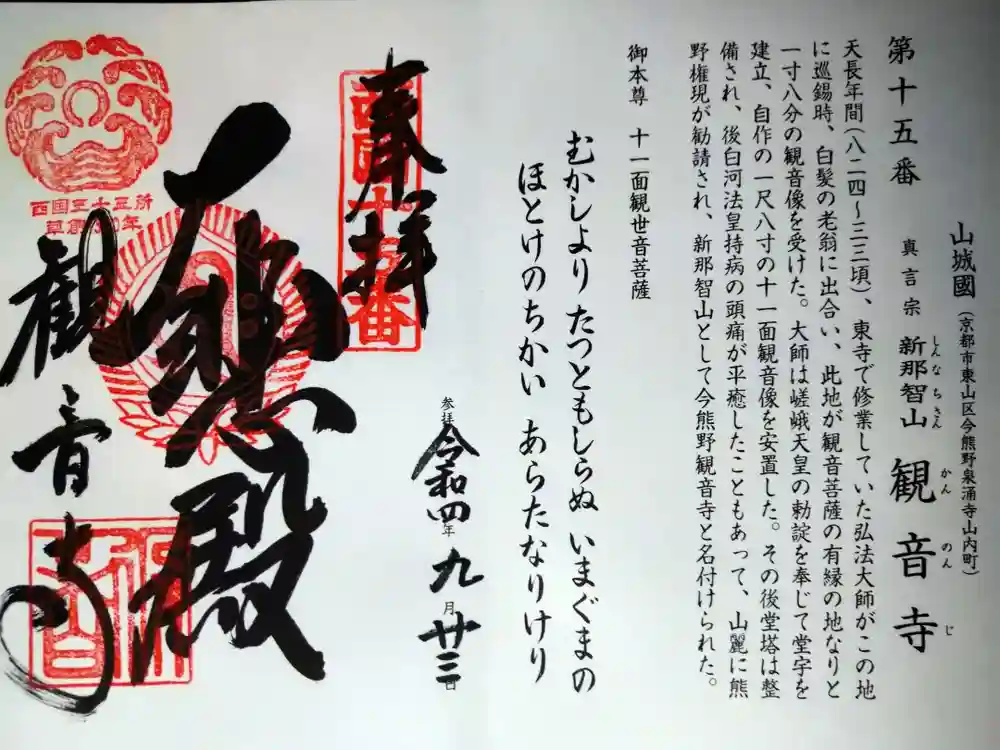 山城國(京都市東山区今熊野泉涌寺山内町)
第十五番 真言宗 新那智山 観音寺
しんなちさん かんのんじ
天長年間(八二四〜三三頃)、東寺で修業していた弘法大師がこの地
に巡錫時、白髪の老翁に出合い、此地が観音菩薩の有縁の地なりと
一寸八分の観音像を受けた。大師は嵯峨天皇の勅諚を奉じて堂宇を
建立、自作の一尺八寸の十一面観音像を安置した。その後堂塔は整
備され、後白河法皇持病の頭痛が平癒したこともあって、山麗に熊
野権現が勧請され、新那智山として今熊野観音寺と名付けられた。
御本尊 十一面観世音菩薩
むかしより たつともしらぬ いまぐまの
ほとけのちかい あらたなりけり
参拝 令和四年 九月 廿三日
奉拝
西国十五番
大悲殿
観音寺
西国三十三所
草創1300年